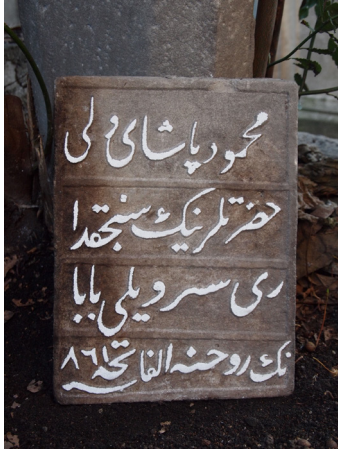 محمود پاشای ولی
حضرتلرینك سنجقدا
ری سرویلی بابا
نك روحنه الفاتحه ٨٦١